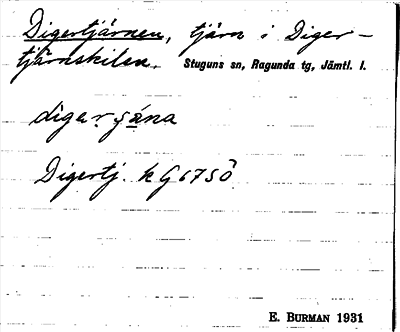 Digertjärnen, tjärn i Diger-
tjärnskilen. Stuguns sn, Ragunda tg, Jämtl. l.
diger şäna
Digertj. k G 67 SÖ
E. BURMAN 1931